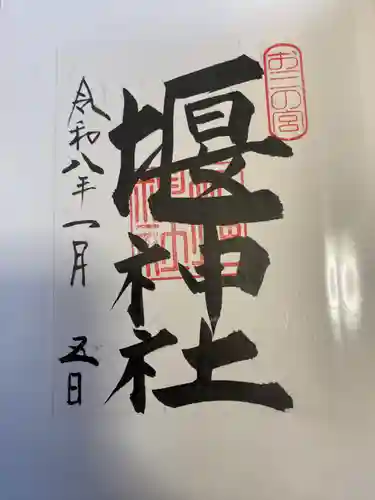 お三の宮
堰神社
令和八年一月五日